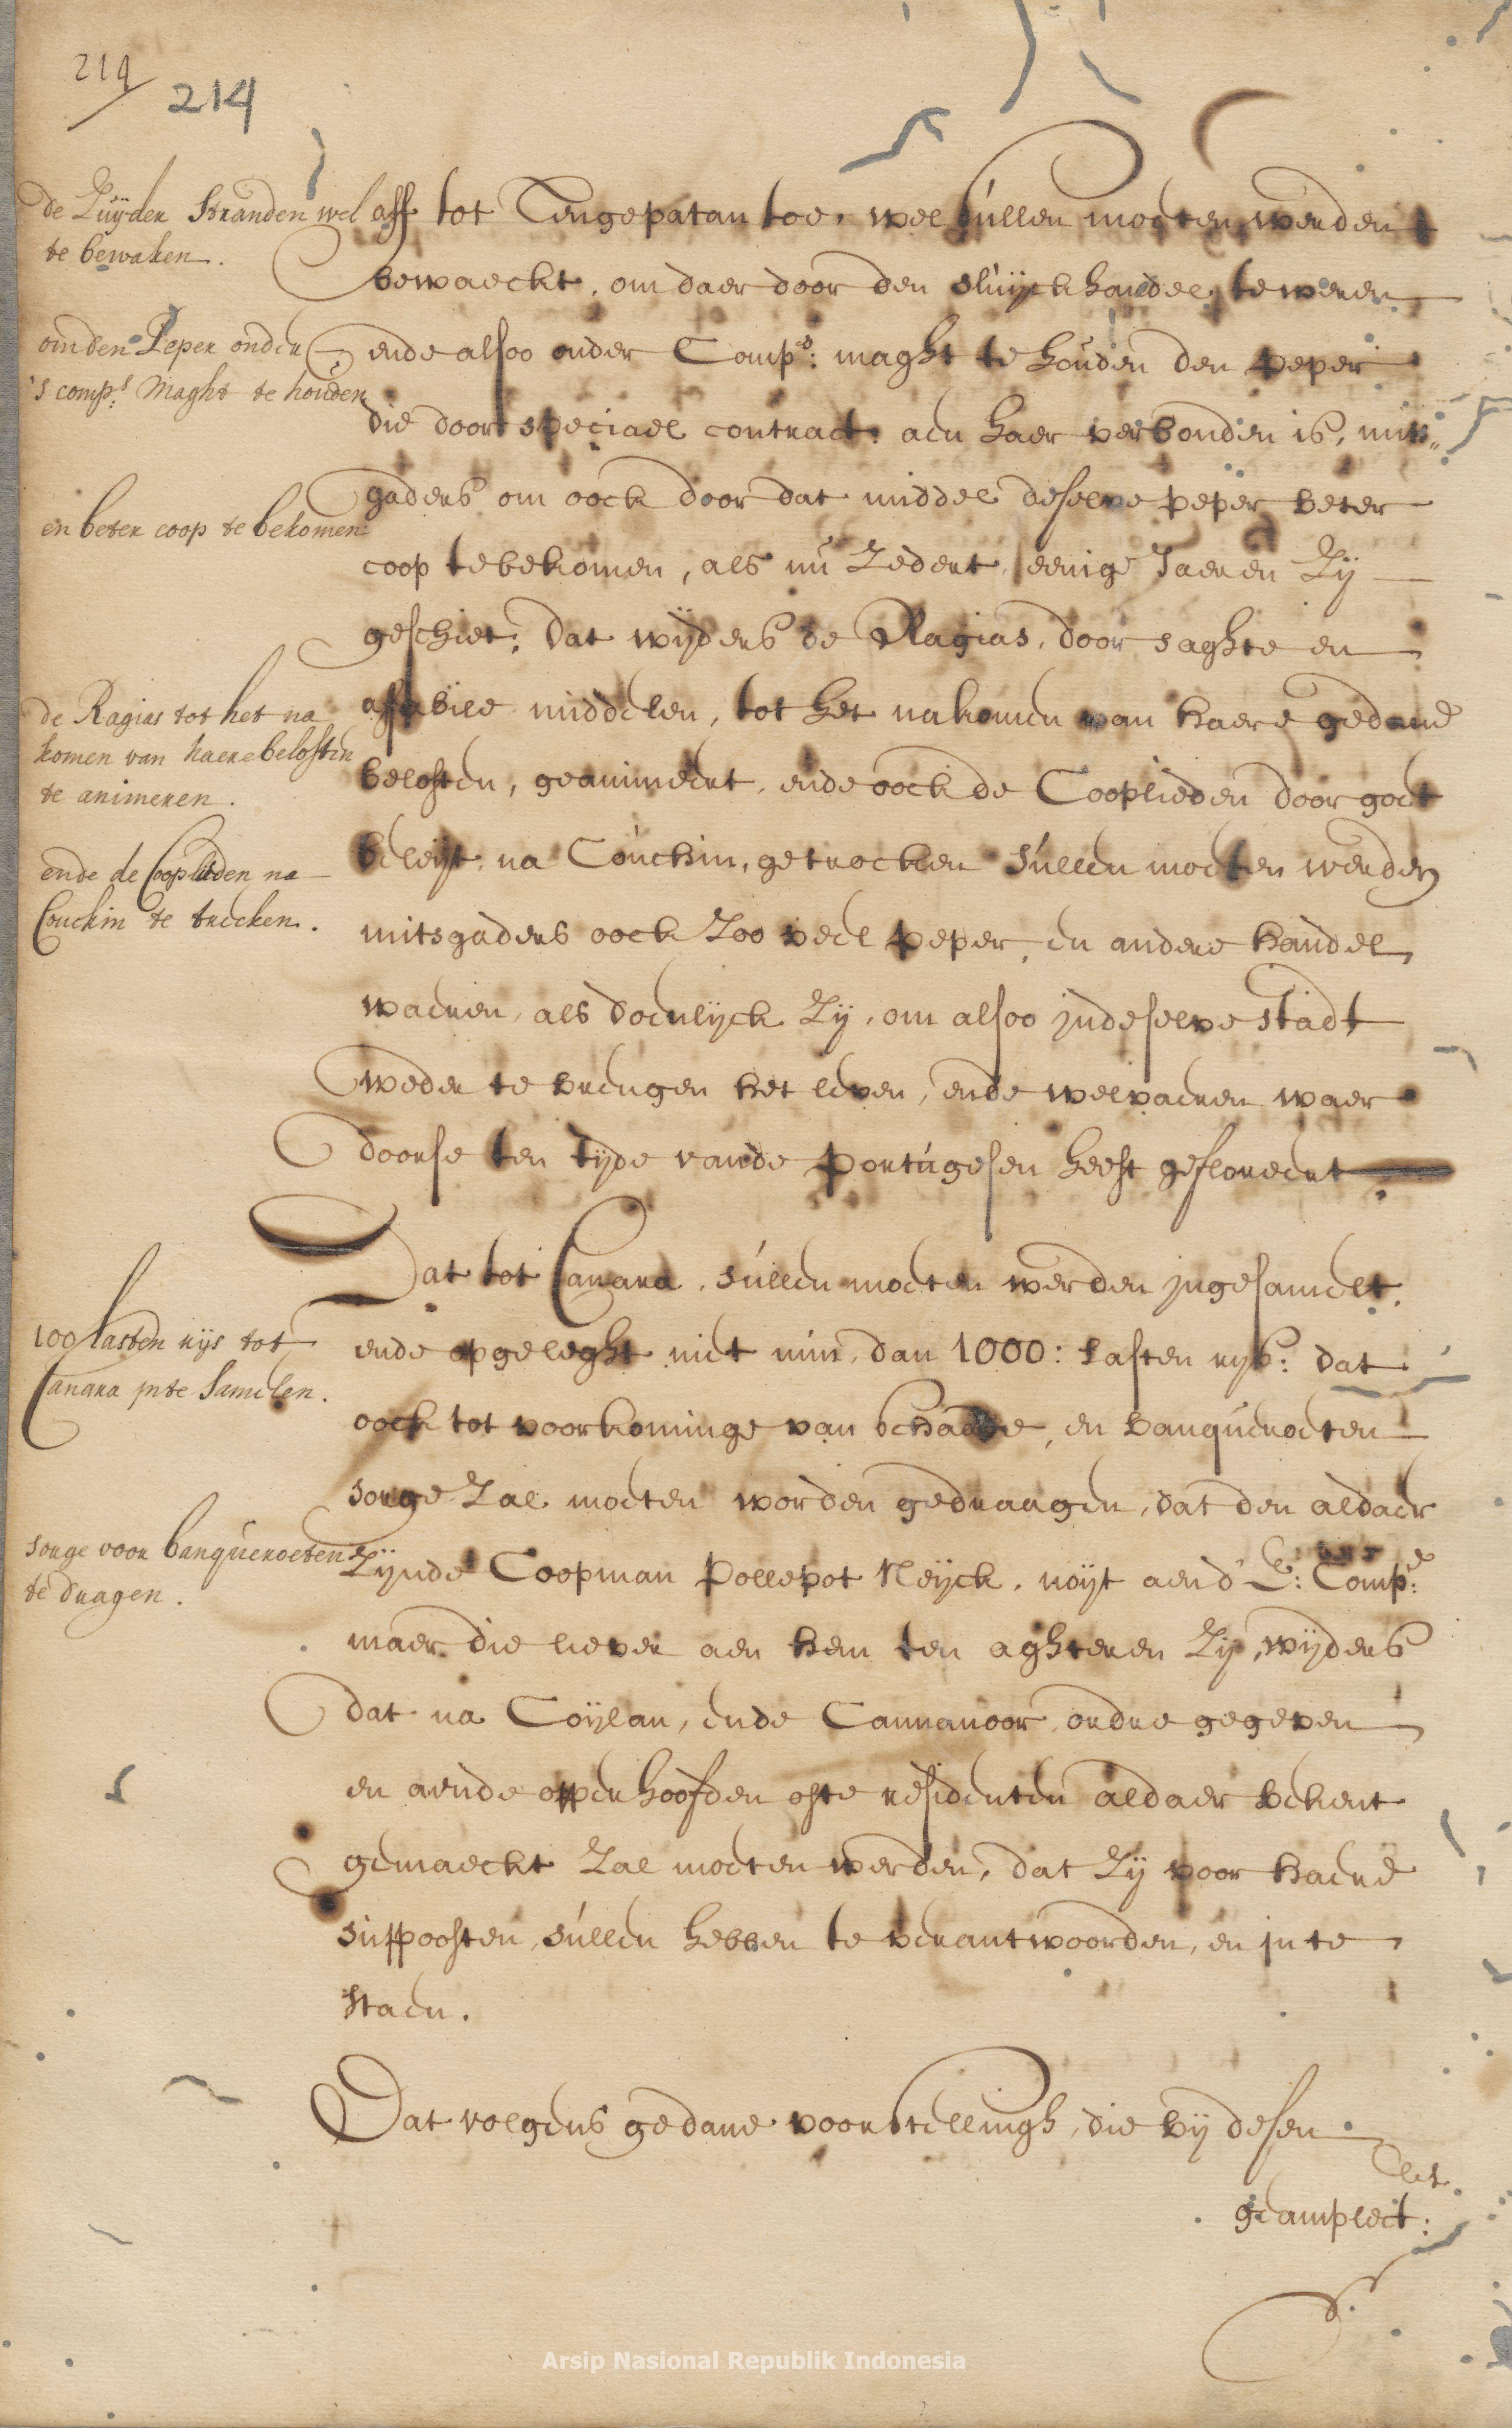 214
214
de Zuyder Stranden wel
te bewaken.
om den Peper onder
's comps: Maght te houden
en beter coop te bekomen
de Ragias tot het na
komen van haere beloften
te animeren.
ende de Coopliden na
Couchin te trecken.
100 lasten rijs tot
Canara in te Samelen.
sorge voor banqueroeten
te dragen.
aff tot Tengepatan toe, wel sullen moeten werden
bewaeckt, om daer door den sluijckhandel te weren
ende alsoo onder Comps: maght te houden den peper
die door speciael contract aen haer verbonden is, mits„
gaders om oock door dat middel deselve peper beter
coop te bekomen, als nu Zedert eenige Jaeren Zij
geschiet; dat wijders de Ragias, door saghte en
affabile middelen, tot het nakomen van haere gedane
beloften, geanimeert, ende oock de Cooplieden door goet
beleijt na Couchin, getrocken sullen moeten werden
mitsgaders oock Zoo veel peper, en andere handel
waeren, als doenlijck Zij, om alsoo in deselve stadt
weder te brengen het leven, ende welvaeren waer
doorse ten tijde vande Portugesen heeft gefloreert
Dat tot Canara, sullen moeten werden ingesamelt,
ende opgeleght niet min, dan 1000: lasten rijs: dat
oock tot voorkominge van schaede, en banqueroeten
sorge Zal moeten worden gedraagen, dat den aldaer
Zijnde Coopman Pollepot Neijck, noijt aen d' E: Compe:
maer die liever aen hem ten aghteren Zij, wijders
dat na Coijlan, ende Cannanoor, ordre gegeven
en aende opperhoofden ofte residenten aldaer bekent
gemaeckt Zal moeten werden, dat Zij voor haere
suppoosten, sullen hebben te verantwoorden, en in te
staen.
Dat volgens gedane voorstellingh, die bij desen
geamplect: